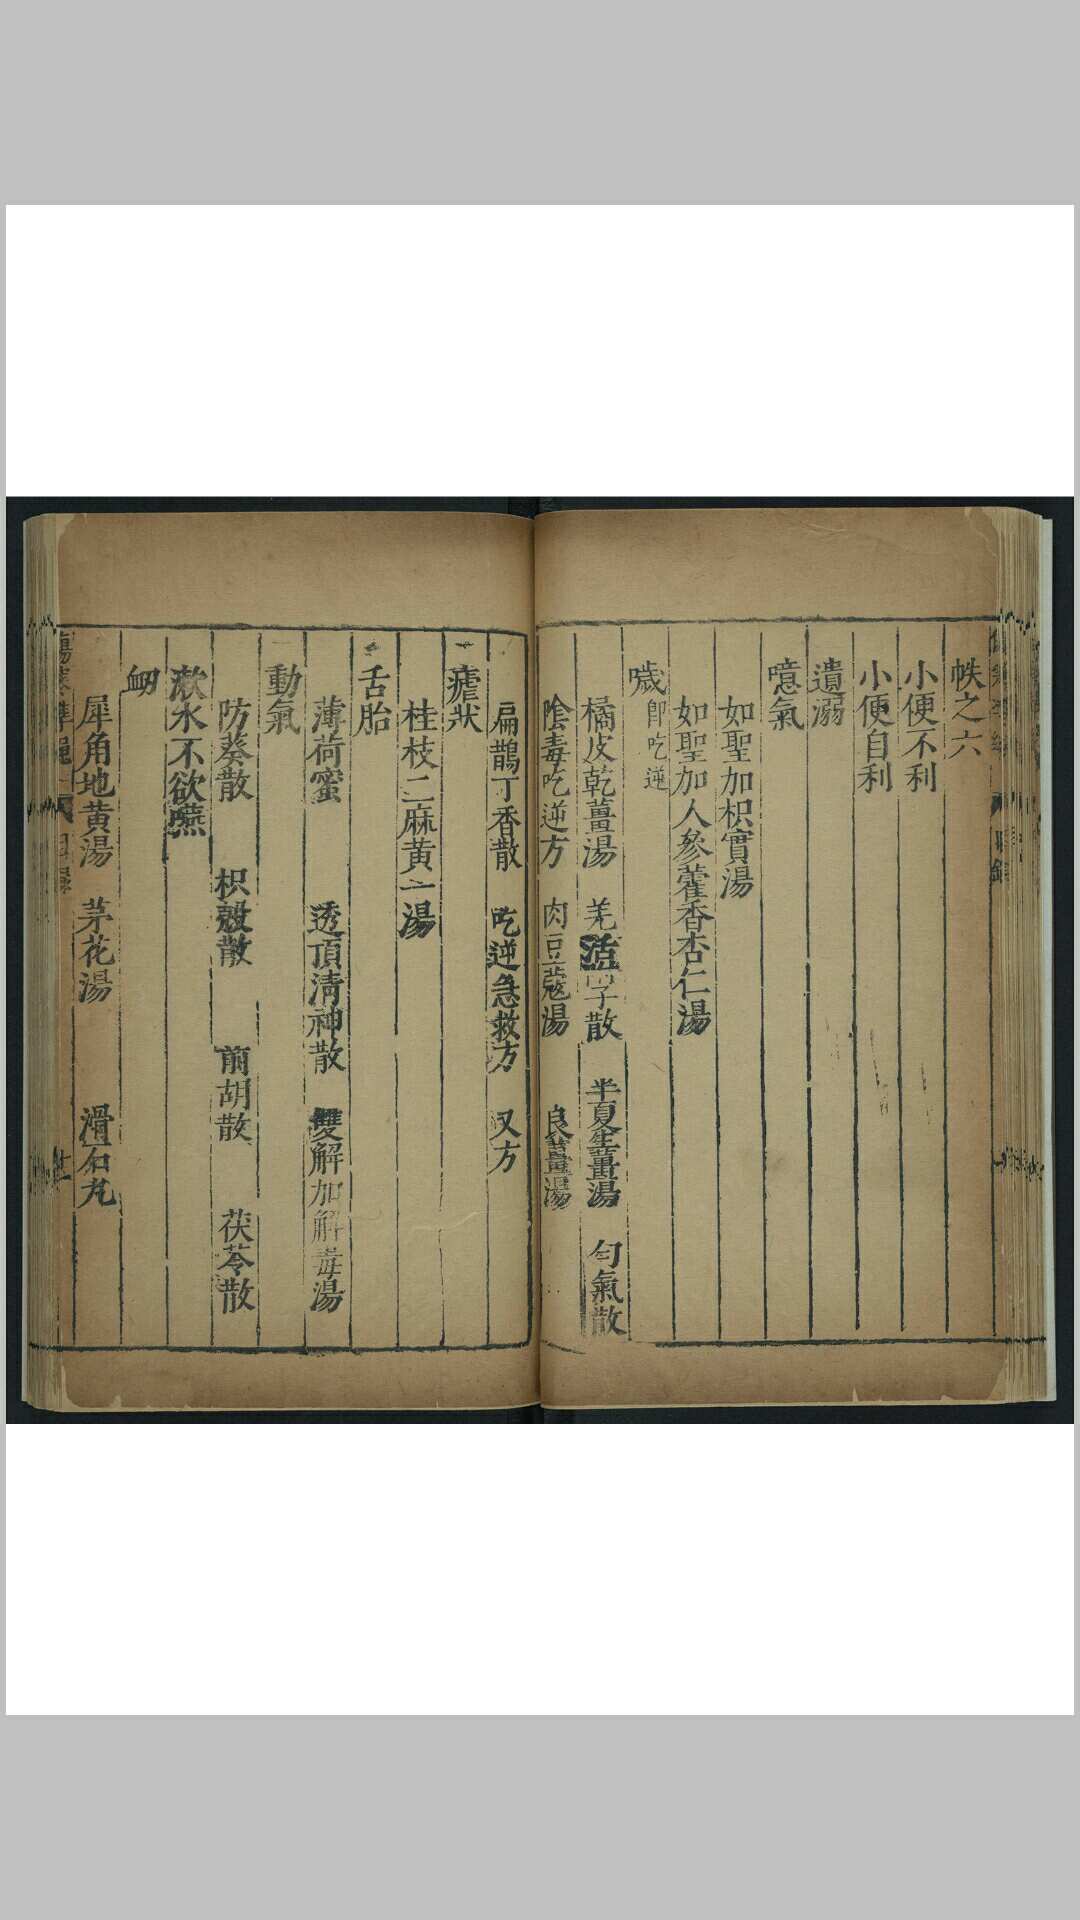 帙之六
小便不利
小便自利
遺溺
噫氣
如聖加枳實湯
如聖加人參藿香杏仁湯
噦 即吃逆
橘皮乾薑湯 羌活 子散 半夏生薑湯 匀氣散
陰毒吃逆方 肉豆蔻湯 良薑湯
扁鵲丁香散 吃逆急救方 又方
瘧狀
桂枝二麻黄一湯
舌胎
薄荷蜜 透頂清神散 雙解加解毒湯
動氣
防葵散 枳殼散 前胡散 茯苓散
漱水不欲嚥
衂
犀角地黄湯 茅花湯 滑石丸